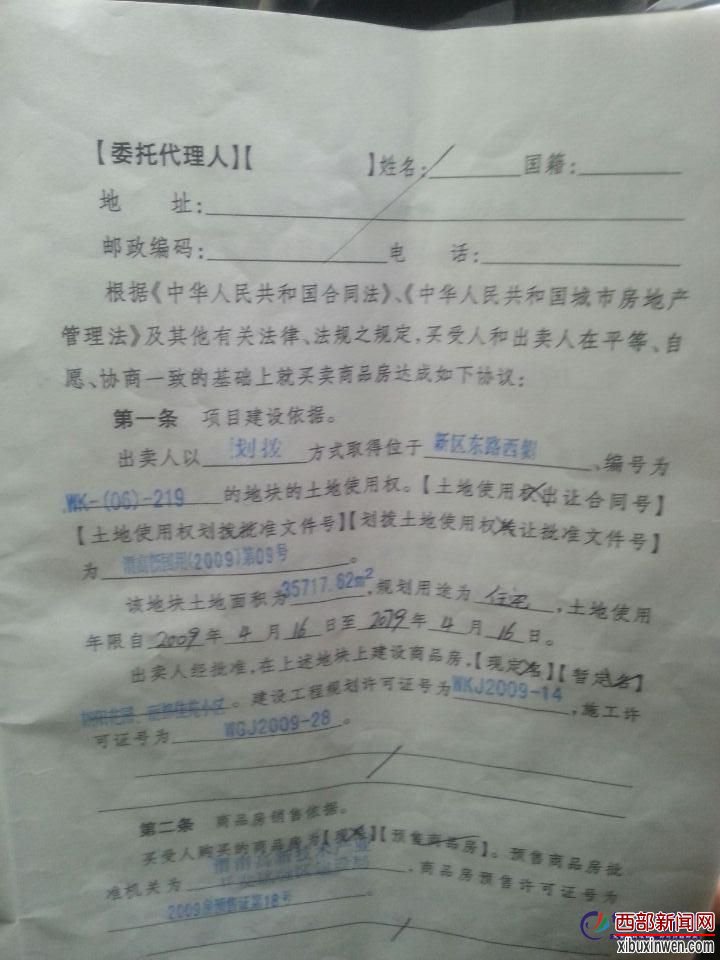 【委托代理人】【 】姓名: 国籍:
地 址:
邮政编码: 电 话:
根据《中华人民共和国合同法》、《中华人民共和国城市房地产
管理法》及其他有关法律、法规之规定,买受人和出卖人在平等、自
愿、协商一致的基础上就买卖商品房达成如下协议:
第一条 项目建设依据。
出卖人以 划拨 方式取得位于 新区东路西侧 、编号为
WK-(06)-219 的地块的土地使用权。【土地使用权出让合同号】
【土地使用权划拨批准文件号】【划拨土地使用权转让批准文件号】
为 渭高新国用(2009)第09号 。
该地块土地面积为 35717.62m² ,规划用途为 住宅 ,土地使用
年限自 2009 年 4 月 16 日至 2079 年 4 月 16 日。
出卖人经批准,在上述地块上建设商品房,【现定名】【暂定名】
。建设工程规划许可证号为 WKJ2009-14 ,施工许
可证号为 WGJ2009-28 。
第二条 商品房销售依据。
买受人购买的商品房为【现房】【预售商品房】。预售商品房批
准机关为 渭南高新技术产业 ,商品房预售许可证号为
2009房预售证第18号 。
西部新闻网
xibuxinwen.com